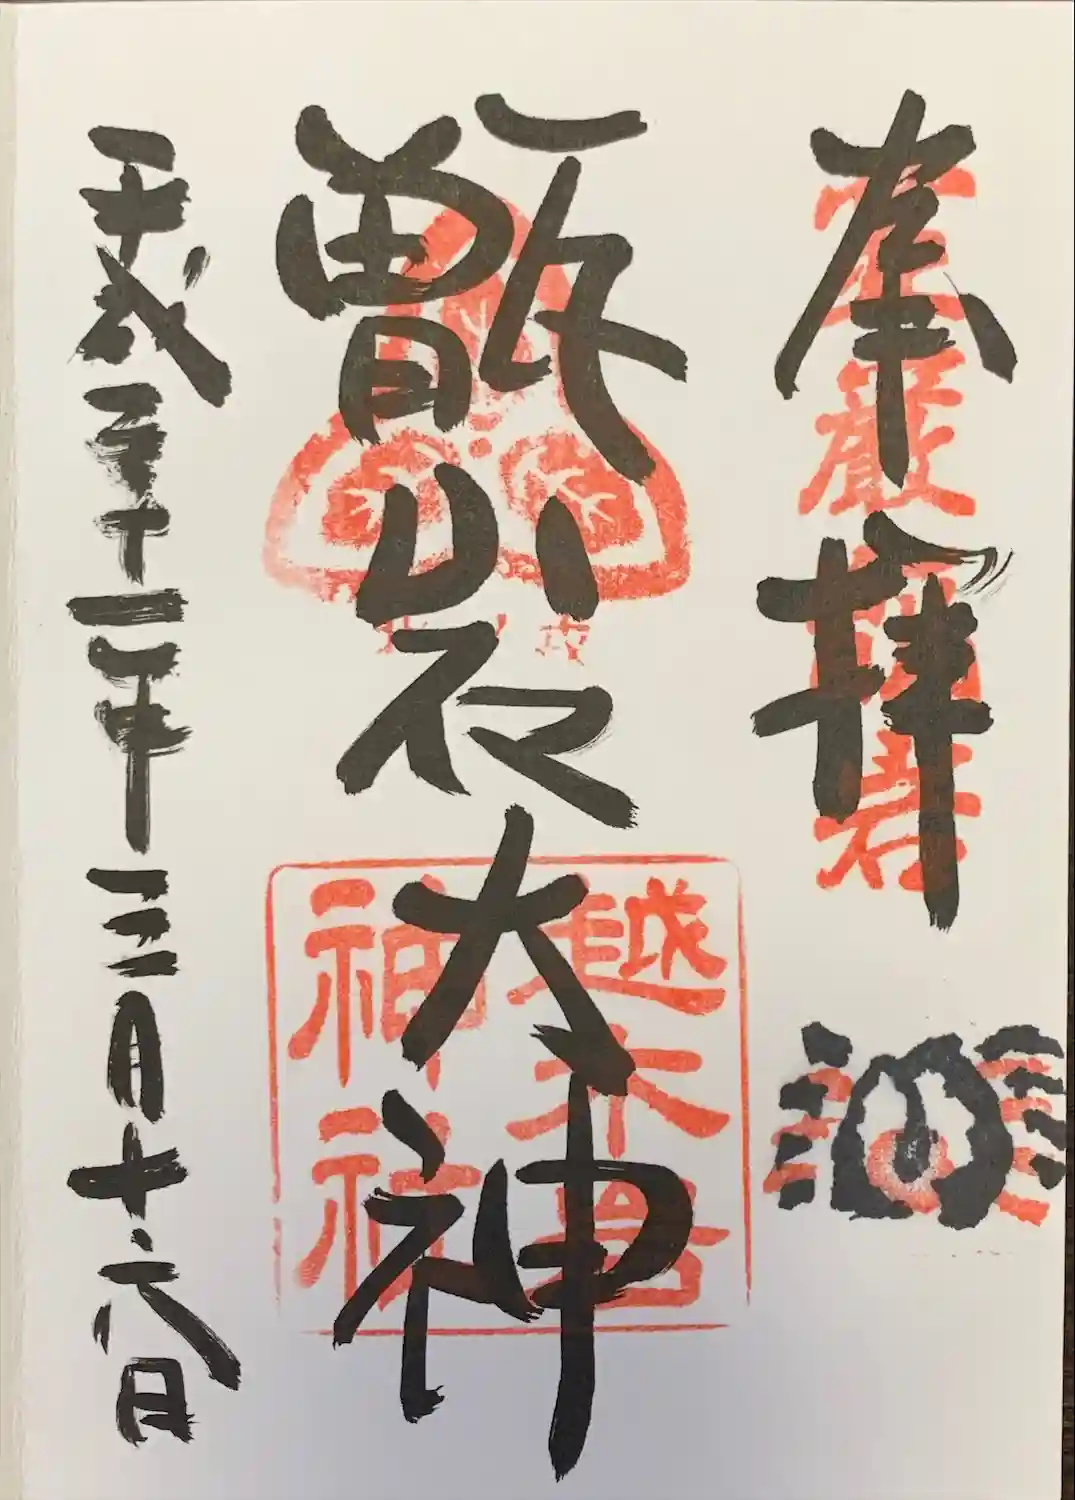 奉拝
甑岩大神
平成三十一年三月十六日
北ノ戎
越木岩
神社